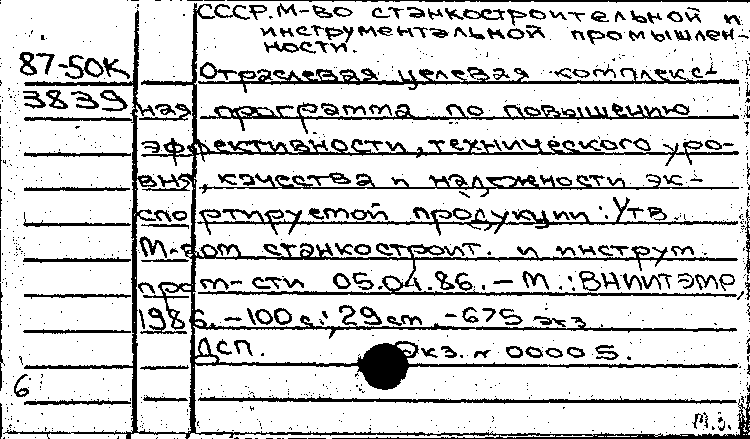 СССР. М-во станкостроительной и
инструментальной промышлен-
ности.
87-50К
3839
Отраслевая целевая комплекс-
ная программа по повышению
эффективности, технического уро-
вня, качества и надежности эк-
спортируемой продукции: Утв.
М-вом станкостроит. и инструм.
пром-сти 05.04.86. - М.: ВНИИТЭМР,
1986. - 100 с.; 29 см. - 675 экз.
ДСП. Экз. № 00005.
6
т.з.